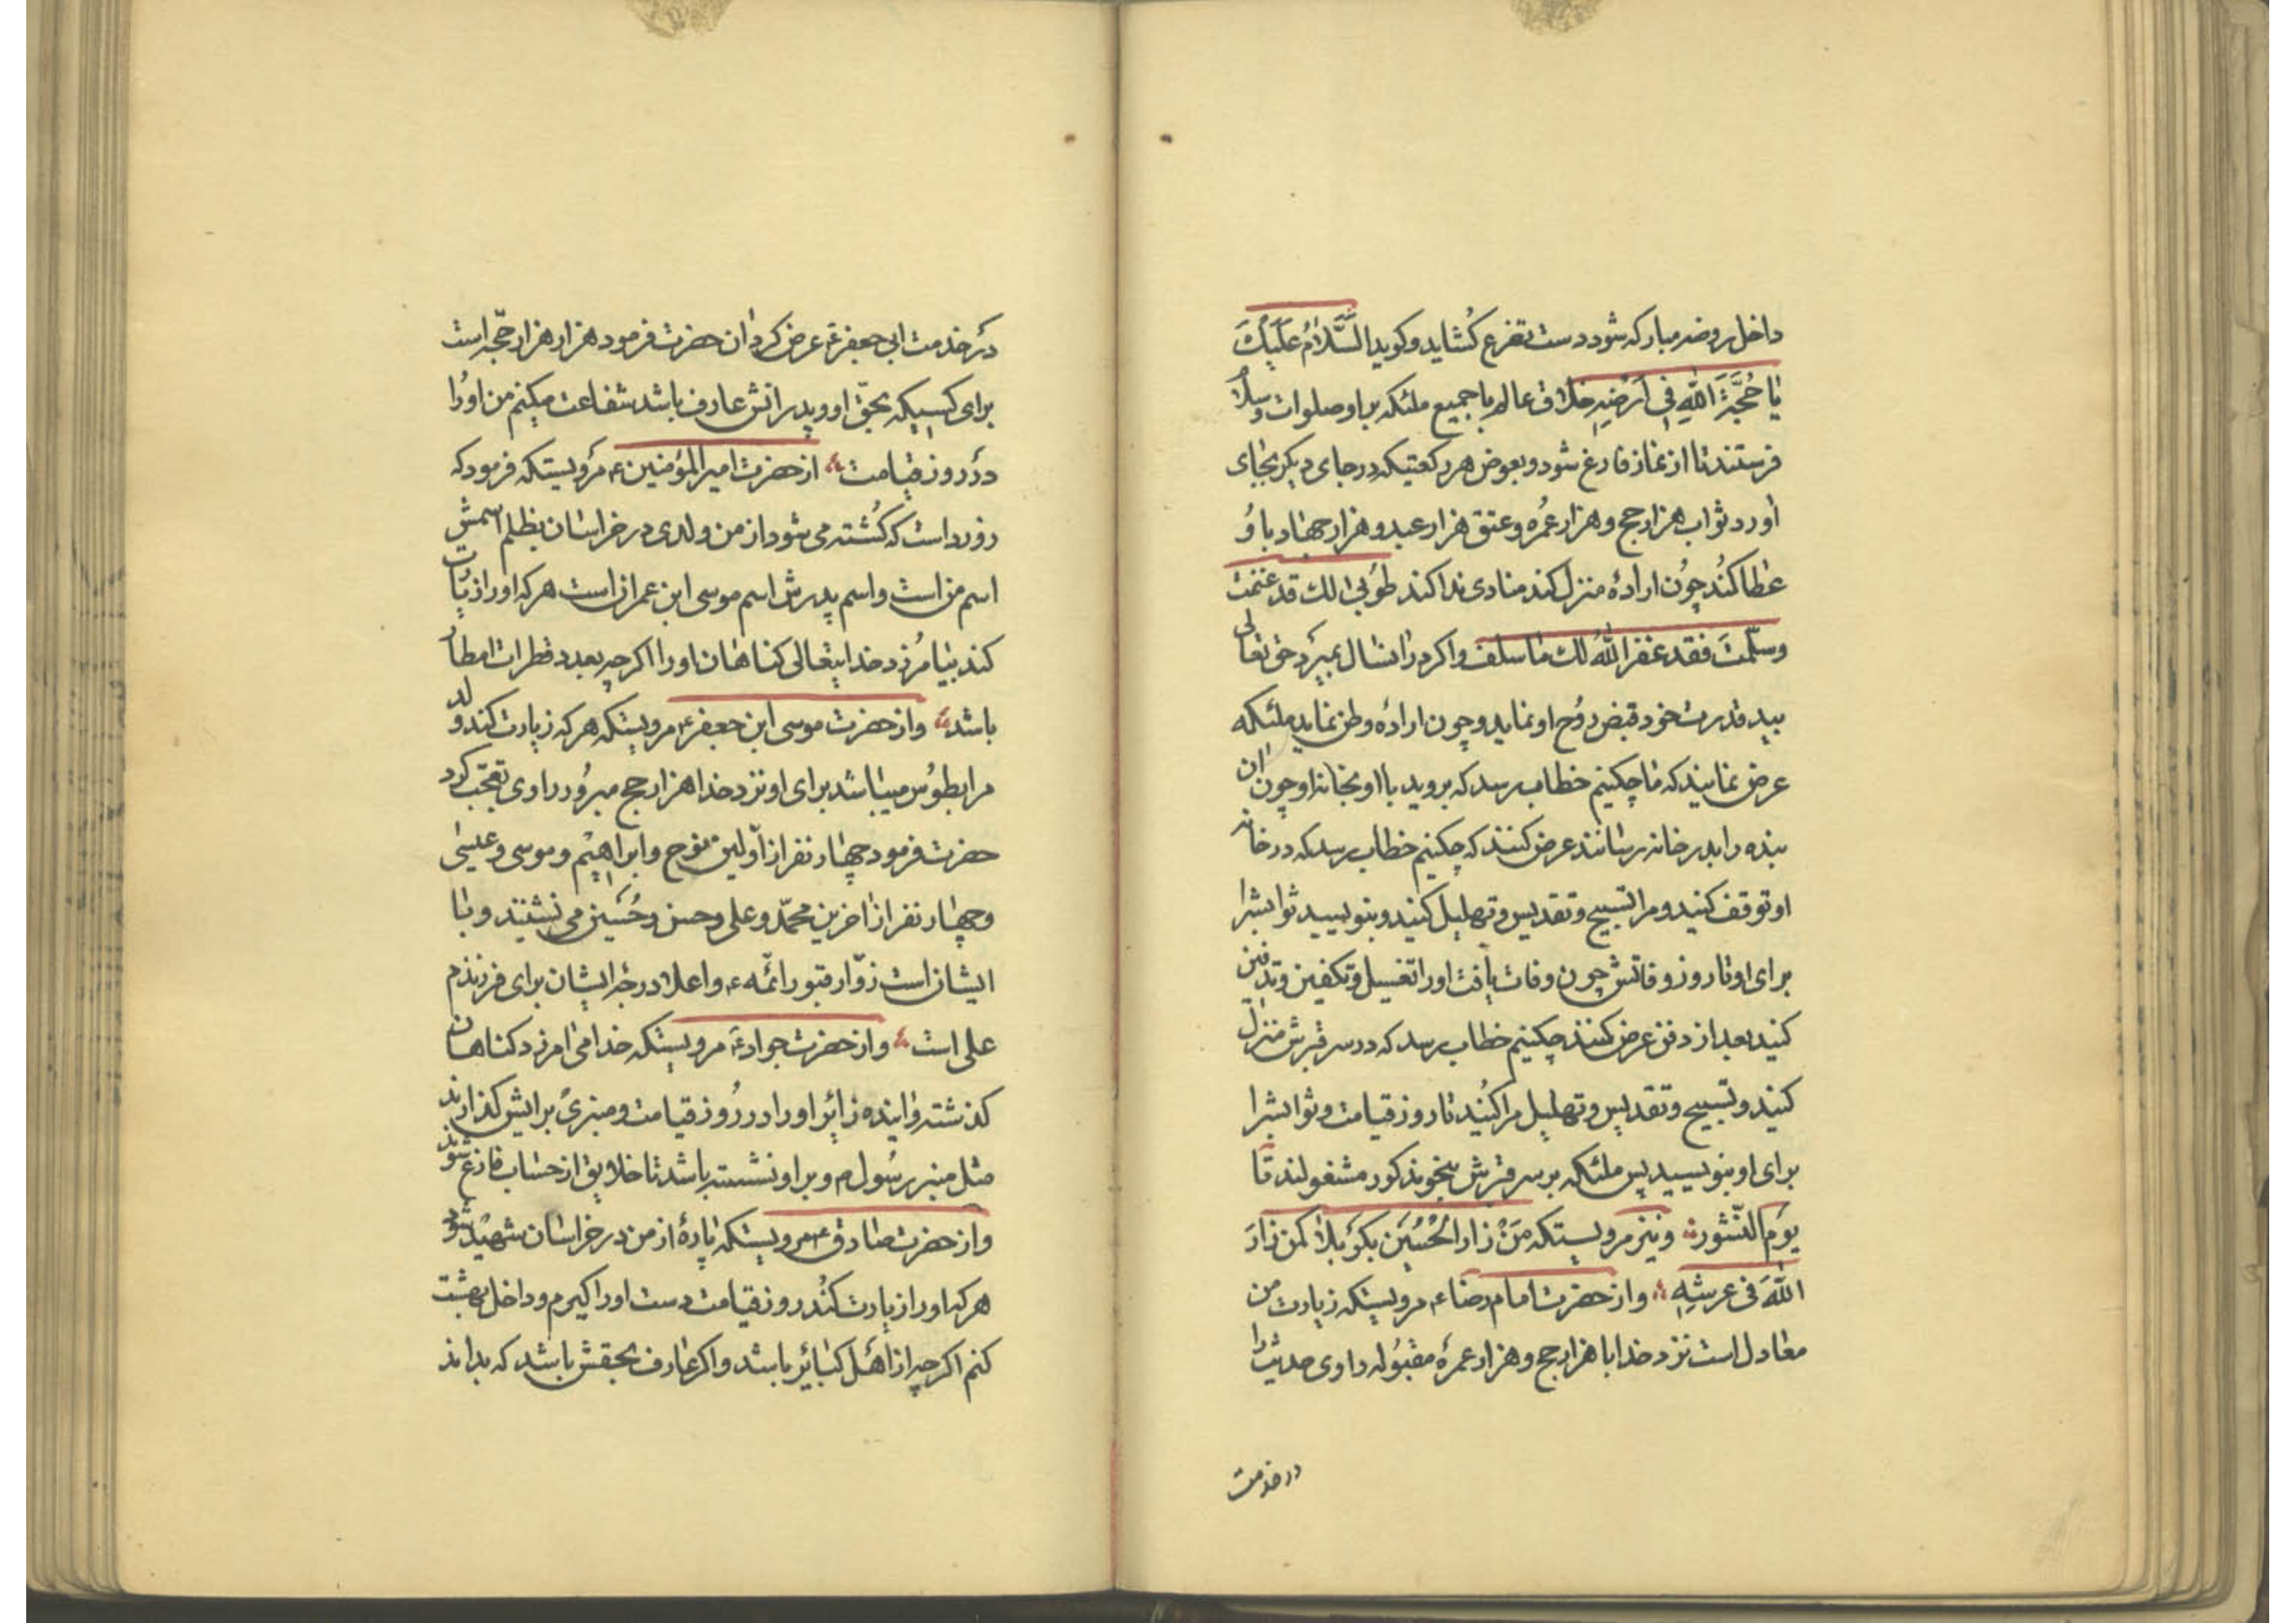 داخل روضه مباركه شود دست تضرع كُشايد و كويد السَّلامُ عَلَيكَ
يا حُجَّةَ اللهِ فِي اَرْضِهِ خلاق عالم با جميع ملئكه بر او صلوات و سلام
فرستند تا از نماز فارغ شود و بعوض هر ركعتيكه در جاى ديكر بجاى
اورد ثواب هزار حج و هزار عمُره و عتق هزار عبد و هزار جهاد باو
عطا كنُد چوُن ارادهٔ منزل كند منادى ندا كند طوُبى لك قد غنمت
و سلّمتَ فقد غفر اللهُ لك ما سلف و اكر در انسال بميرد حق تعالى
بيد قدرت خود قبض روُح او نمايد و چون ارادهٔ وطن نمايد ملئكه
عرض نمايند كه ما چكنيم خطاب رسد كه برويد با او بخانه او چون ان
بنده را بدر خانه رسانند عرض كنند كه چكنيم خطاب رسد كه در خانه
او توقف كنيد و مرا تسبيح و تقديس و تهليل كنيد و بنويسيد ثوابشرا
براى او تا روز وفاتش چون وفات يافت او را تغسيل و تكفين و تدفين
كنيد بعد از دفن عرض كنند چكنيم خطاب رسد كه در سر قبرش منزل
كنيد و تسبيح و تقديس و تهليل مرا كنُيد تا روز قيامت و ثوابشرا
براى او بنويسيد پس ملئكه بر سر قبرش بنحو مذكور مشغولند تا
يوَم النّشور و نيز مرويستكه مَنْ زار الحُسَين بكرَبلا كمن زارَ
اللهَ فى عرشِهِ و از حضرت امام رضاء مرويستكه زيارت من
معادل است نزد خدا با هزار حج و هزار عمرهٔ مقبوُله راوى حديث را
در خدمت
در خدمت ابى جعفر ع عرض كرد ان حضرت فرمود هزار هزار حجّه است
براى كسيكه بحقّ او و پدرانش عارف باشد شفاعت ميكنم من اورُا
در روز قيامت از حضرت امير المؤمنين ع مرويستكه فرمود كه
زود است كه كُشته مى شود از من ولدى در خراسان بظلم اسمش
اسم من است و اسم پدرش اسم موسى ابن عمران است هر كه او را زيارت
كند بيامُرزد خدايتعالى كناهان او را اكرچه بعدد قطرات امطار
باشد و از حضرت موسى ابن جعفر ع مرويستكه هر كه زيارت كند ولد
مرا بطوُس ميباشد براى او نزد خدا هزار حج مبروُر راوى تعجّب كرد
حضرت فرمود چهار نفر از اوّلين نوح و ابراهيم و موسى و عيسى
و چهار نفر از اخرين محمّد و على و حسن و حُسَين مى نشينند و با
ايشان است زوّار قبور ائمّه ع و اعلا درجهٔ ايشان براى فرزندم
على است و از حضرت جواد ع مرويستكه خدا مى امرزد كناهان
كذشته و اينده زائر او را در رُوز قيامت و منبرى برايش كذارند
مثل منبر رسُول م و بر او نشسته باشد تا خلايق از حساب فارغ شوند
و از حضرت صادق ع مرويستكه پارهٔ از من در خراسان شهيد شود
هر كه او را زيارت كنُد روز قيامت دست او را كيرم و داخل بهشت
كنم اكرچه از اهَل كبائر باشد و اكر عارف بحقش باشد كه بداند